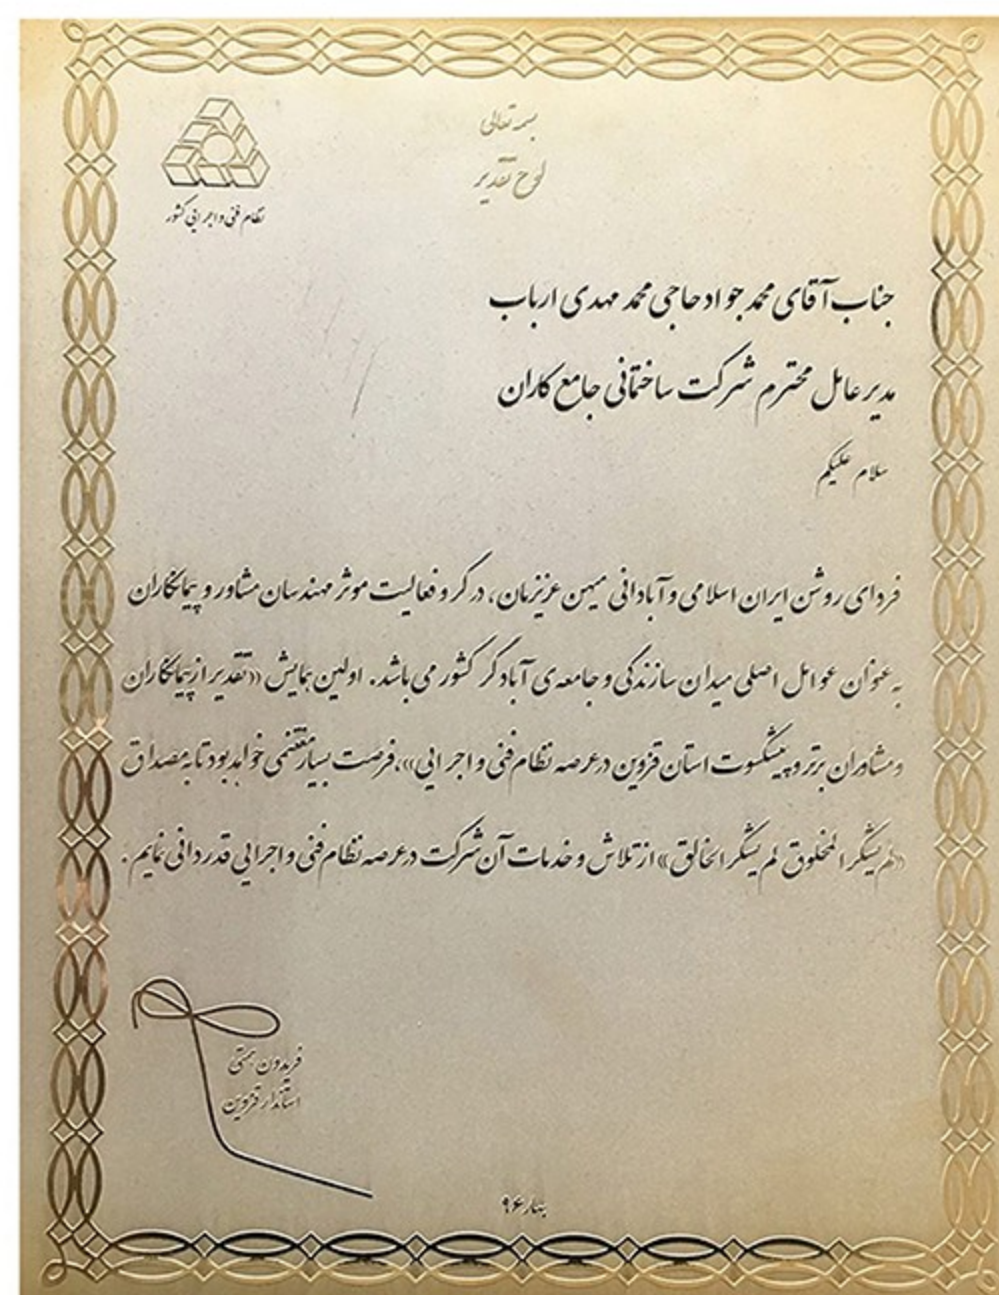 بسمه تعالی
لوح تقدیر
نظام فنی و اجرایی کشور
جناب آقای محمد جواد حاجی محمد مهدی ارباب
مدیر عامل محترم شرکت ساختمانی جامع کاران
سلام علیکم
فردای روشن ایران اسلامی و آبادانی میهن عزیزمان، در گرو فعالیت موثر مهندسان مشاور و پیمانکاران
به عنوان عوامل اصلی میدان سازندگی و جامعه ی آبادگر کشور می باشد. اولین همایش «تقدیر از پیمانکاران
و مشاوران برتر و پیشکسوت استان قزوین در عرصه نظام فنی و اجرایی»، فرصت بسیار مغتنمی خواهد بود تا به مصداق
«لم یشکر المخلوق لم یشکر الخالق» از تلاش و خدمات آن شرکت در عرصه نظام فنی و اجرایی قدردانی نمایم.
فریدون همتی
استاندار قزوین
بهار ۹۶